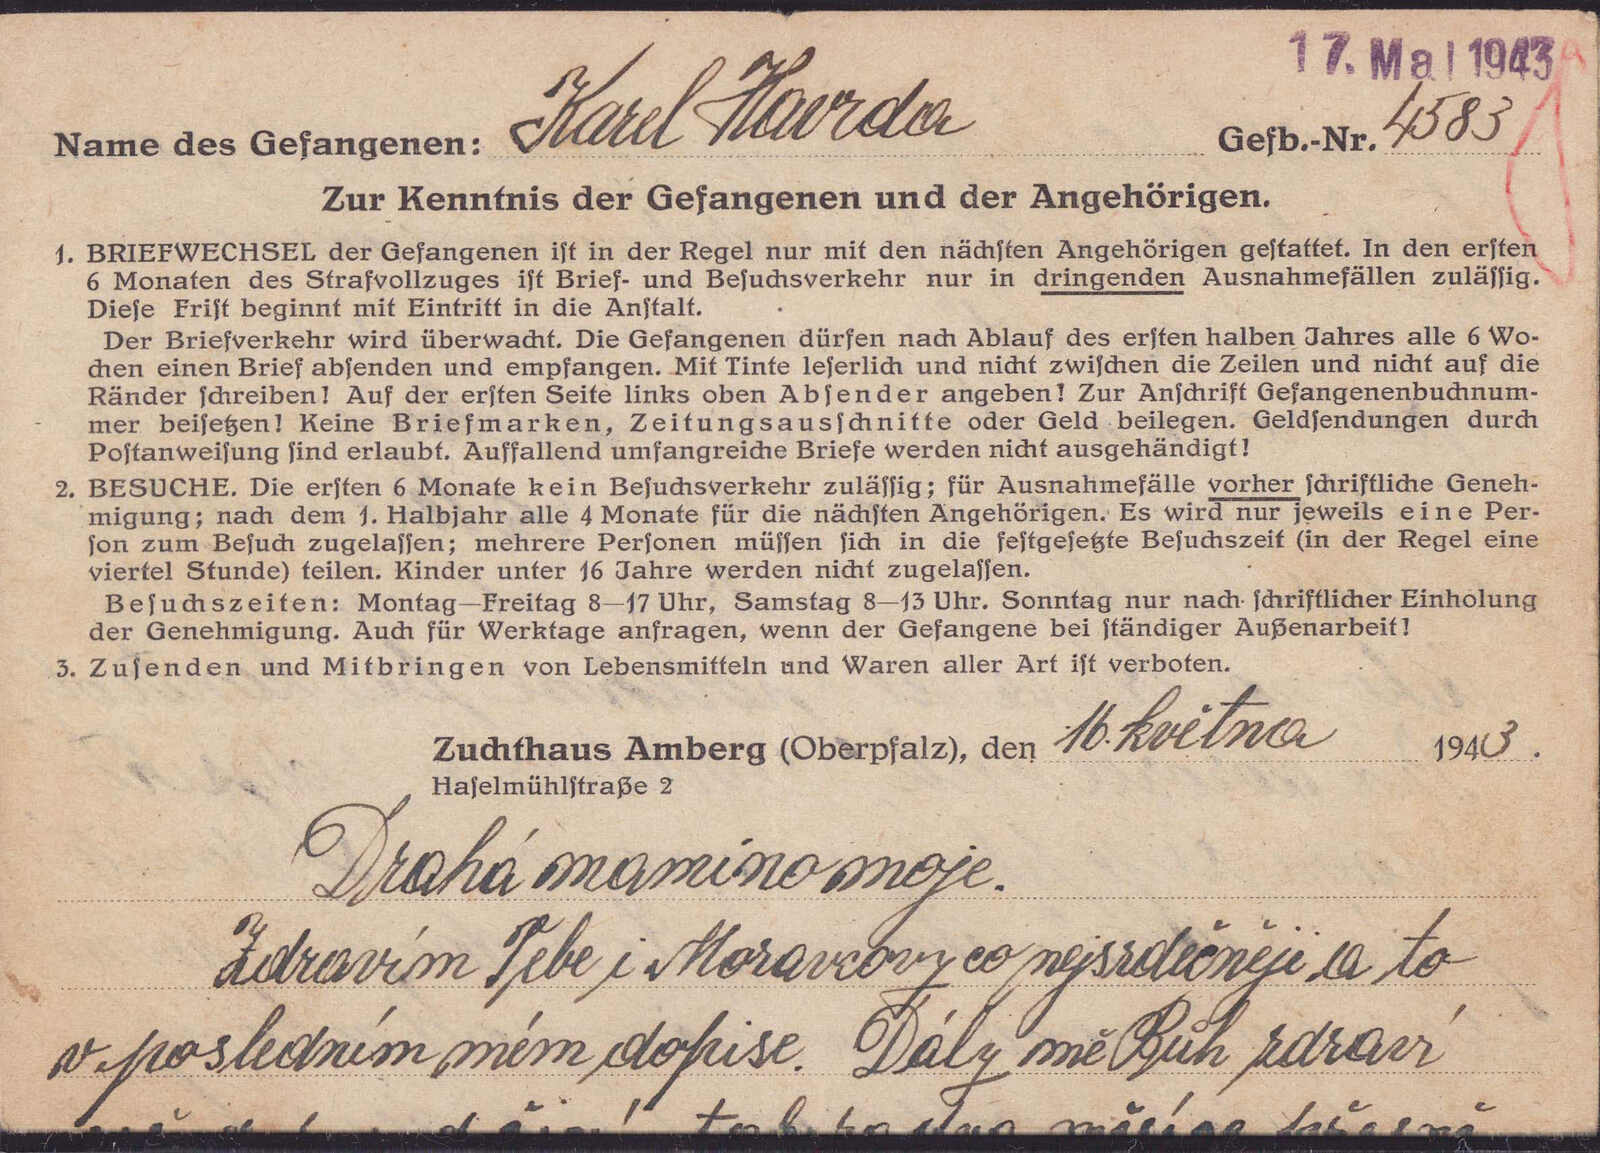 17. Mai 1943
Name des Gefangenen: Karel Havrda Gefb.-Nr. 4583
Zur Kenntnis der Gefangenen und der Angehörigen.
1. BRIEFWECHSEL der Gefangenen iſt in der Regel nur mit den nächſten Angehörigen geſtattet. In den erſten
6 Monaten des Strafvollzuges iſt Brief- und Beſuchsverkehr nur in dringenden Ausnahmefällen zuläſſig.
Dieſe Friſt beginnt mit Eintritt in die Anſtalt.
Der Briefverkehr wird überwacht. Die Gefangenen dürfen nach Ablauf des erſten halben Jahres alle 6 Wo-
chen einen Brief abſenden und empfangen. Mit Tinte leſerlich und nicht zwiſchen die Zeilen und nicht auf die
Ränder ſchreiben! Auf der erſten Seite links oben Abſender angeben! Zur Anſchrift Gefangenenbuchnum-
mer beiſetzen! Keine Briefmarken, Zeitungsausſchnitte oder Geld beilegen. Geldſendungen durch
Poſtanweiſung ſind erlaubt. Auffallend umfangreiche Briefe werden nicht ausgehändigt!
2. BESUCHE. Die erſten 6 Monate kein Beſuchsverkehr zuläſſig; für Ausnahmefälle vorher ſchriftliche Geneh-
migung; nach dem 1. Halbjahr alle 4 Monate für die nächſten Angehörigen. Es wird nur jeweils eine Per-
ſon zum Beſuch zugelaſſen; mehrere Perſonen müſſen ſich in die feſtgeſetzte Beſuchszeit (in der Regel eine
viertel Stunde) teilen. Kinder unter 16 Jahre werden nicht zugelaſſen.
Beſuchszeiten: Montag—Freitag 8—17 Uhr, Samstag 8—13 Uhr. Sonntag nur nach ſchriftlicher Einholung
der Genehmigung. Auch für Werktage anfragen, wenn der Gefangene bei ſtändiger Außenarbeit!
3. Zuſenden und Mitbringen von Lebensmitteln und Waren aller Art iſt verboten.
Zuchthaus Amberg (Oberpfalz), den 16. května 1943.
Haſelmühlſtraße 2
Drahá mamino moje.
Zdravím Tebe i Moravcovy co nejsrdečněji a to
v posledním mém dopise. Dály mě Bůh zdraví